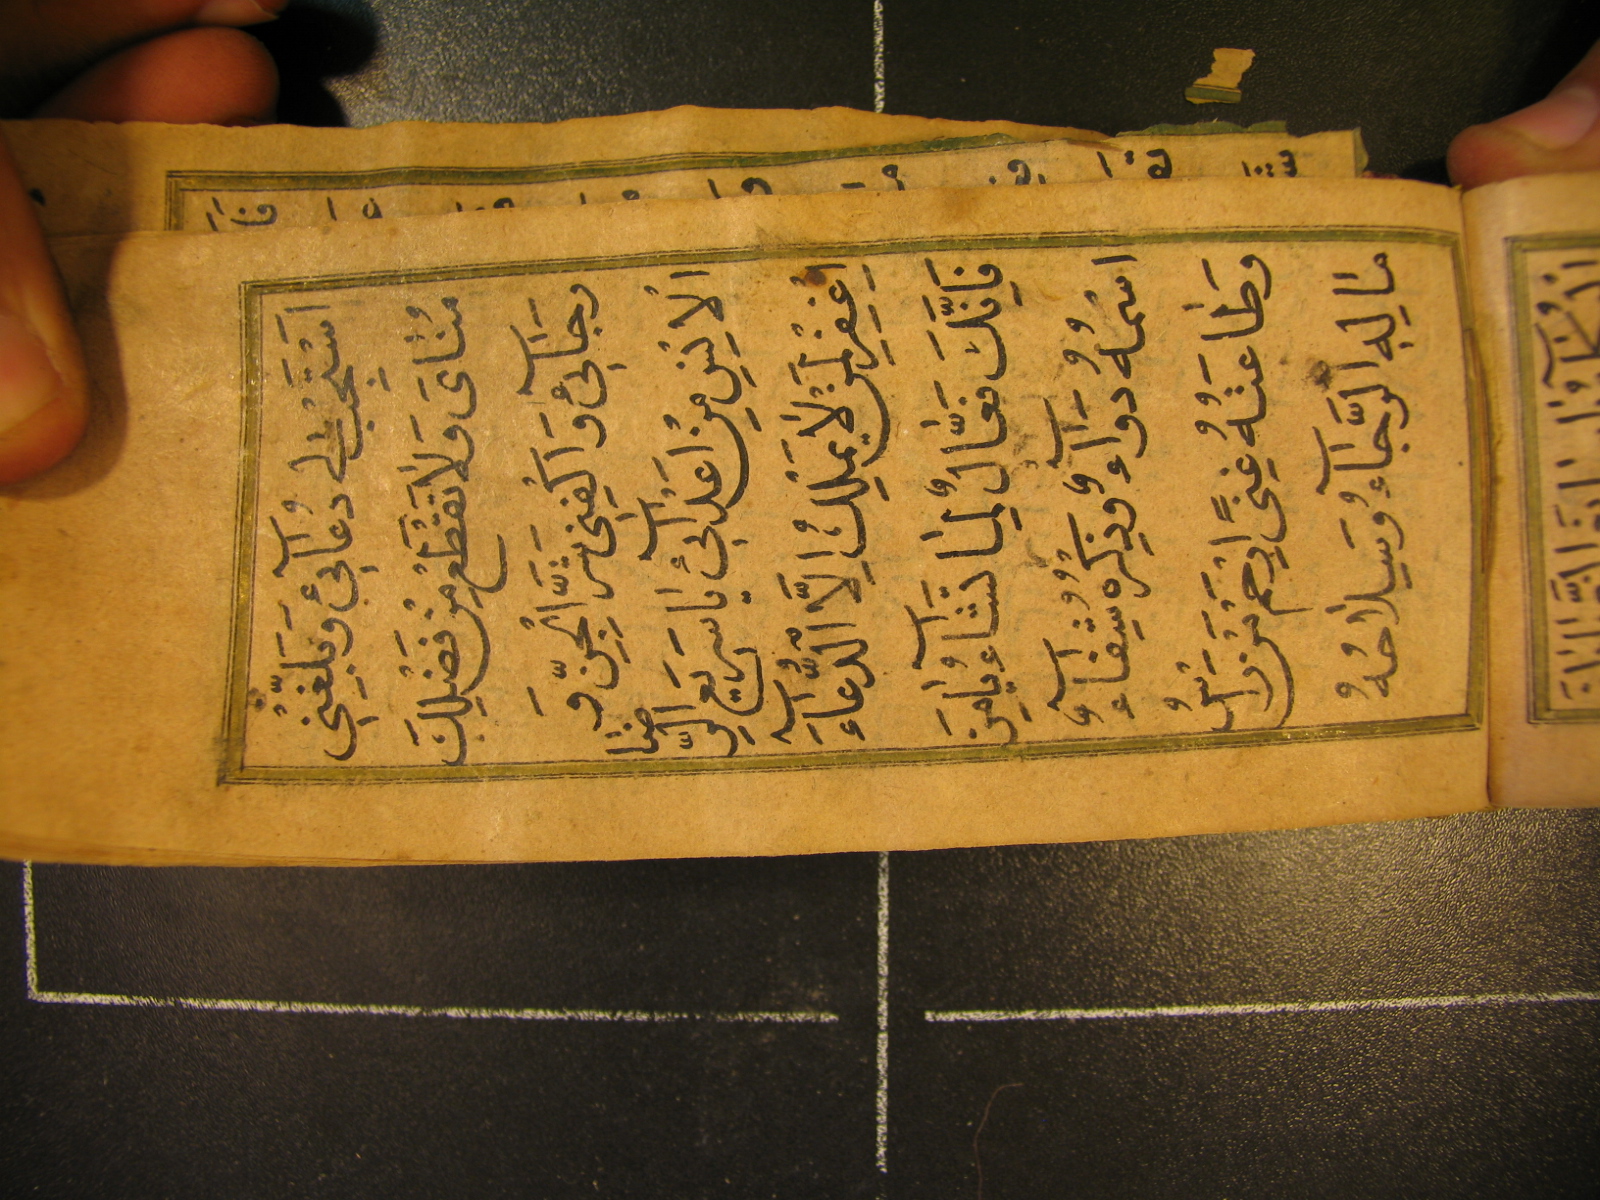 اَسْتَجِبْ لي دُعآئي وَبَلِّغْني
مُنايَ وَلا تَقْطَعْ مِنْ فَضْلِكَ
رَجآئي وَاكْفِني شَرَّ الْجِنِّ وَ
الْاِنْسِ مِنْ اَعْدآئي يا سَريعَ الرِّضا
اِغْفِرْ لِمَنْ لا يَمْلِكُ اِلَّا الدُّعآءَ
فَاِنَّكَ فَعّالٌ لِما تَشآءُ يا مَنِ
اسْمُهُ دَوآءٌ وَذِكْرُهُ شِفآءٌ
وَطاعَتُهُ غِنىً اِرْحَمْ مَنْ رَأْسُ
مالِهِ الرَّجآءُ وَسِلاحُهُ